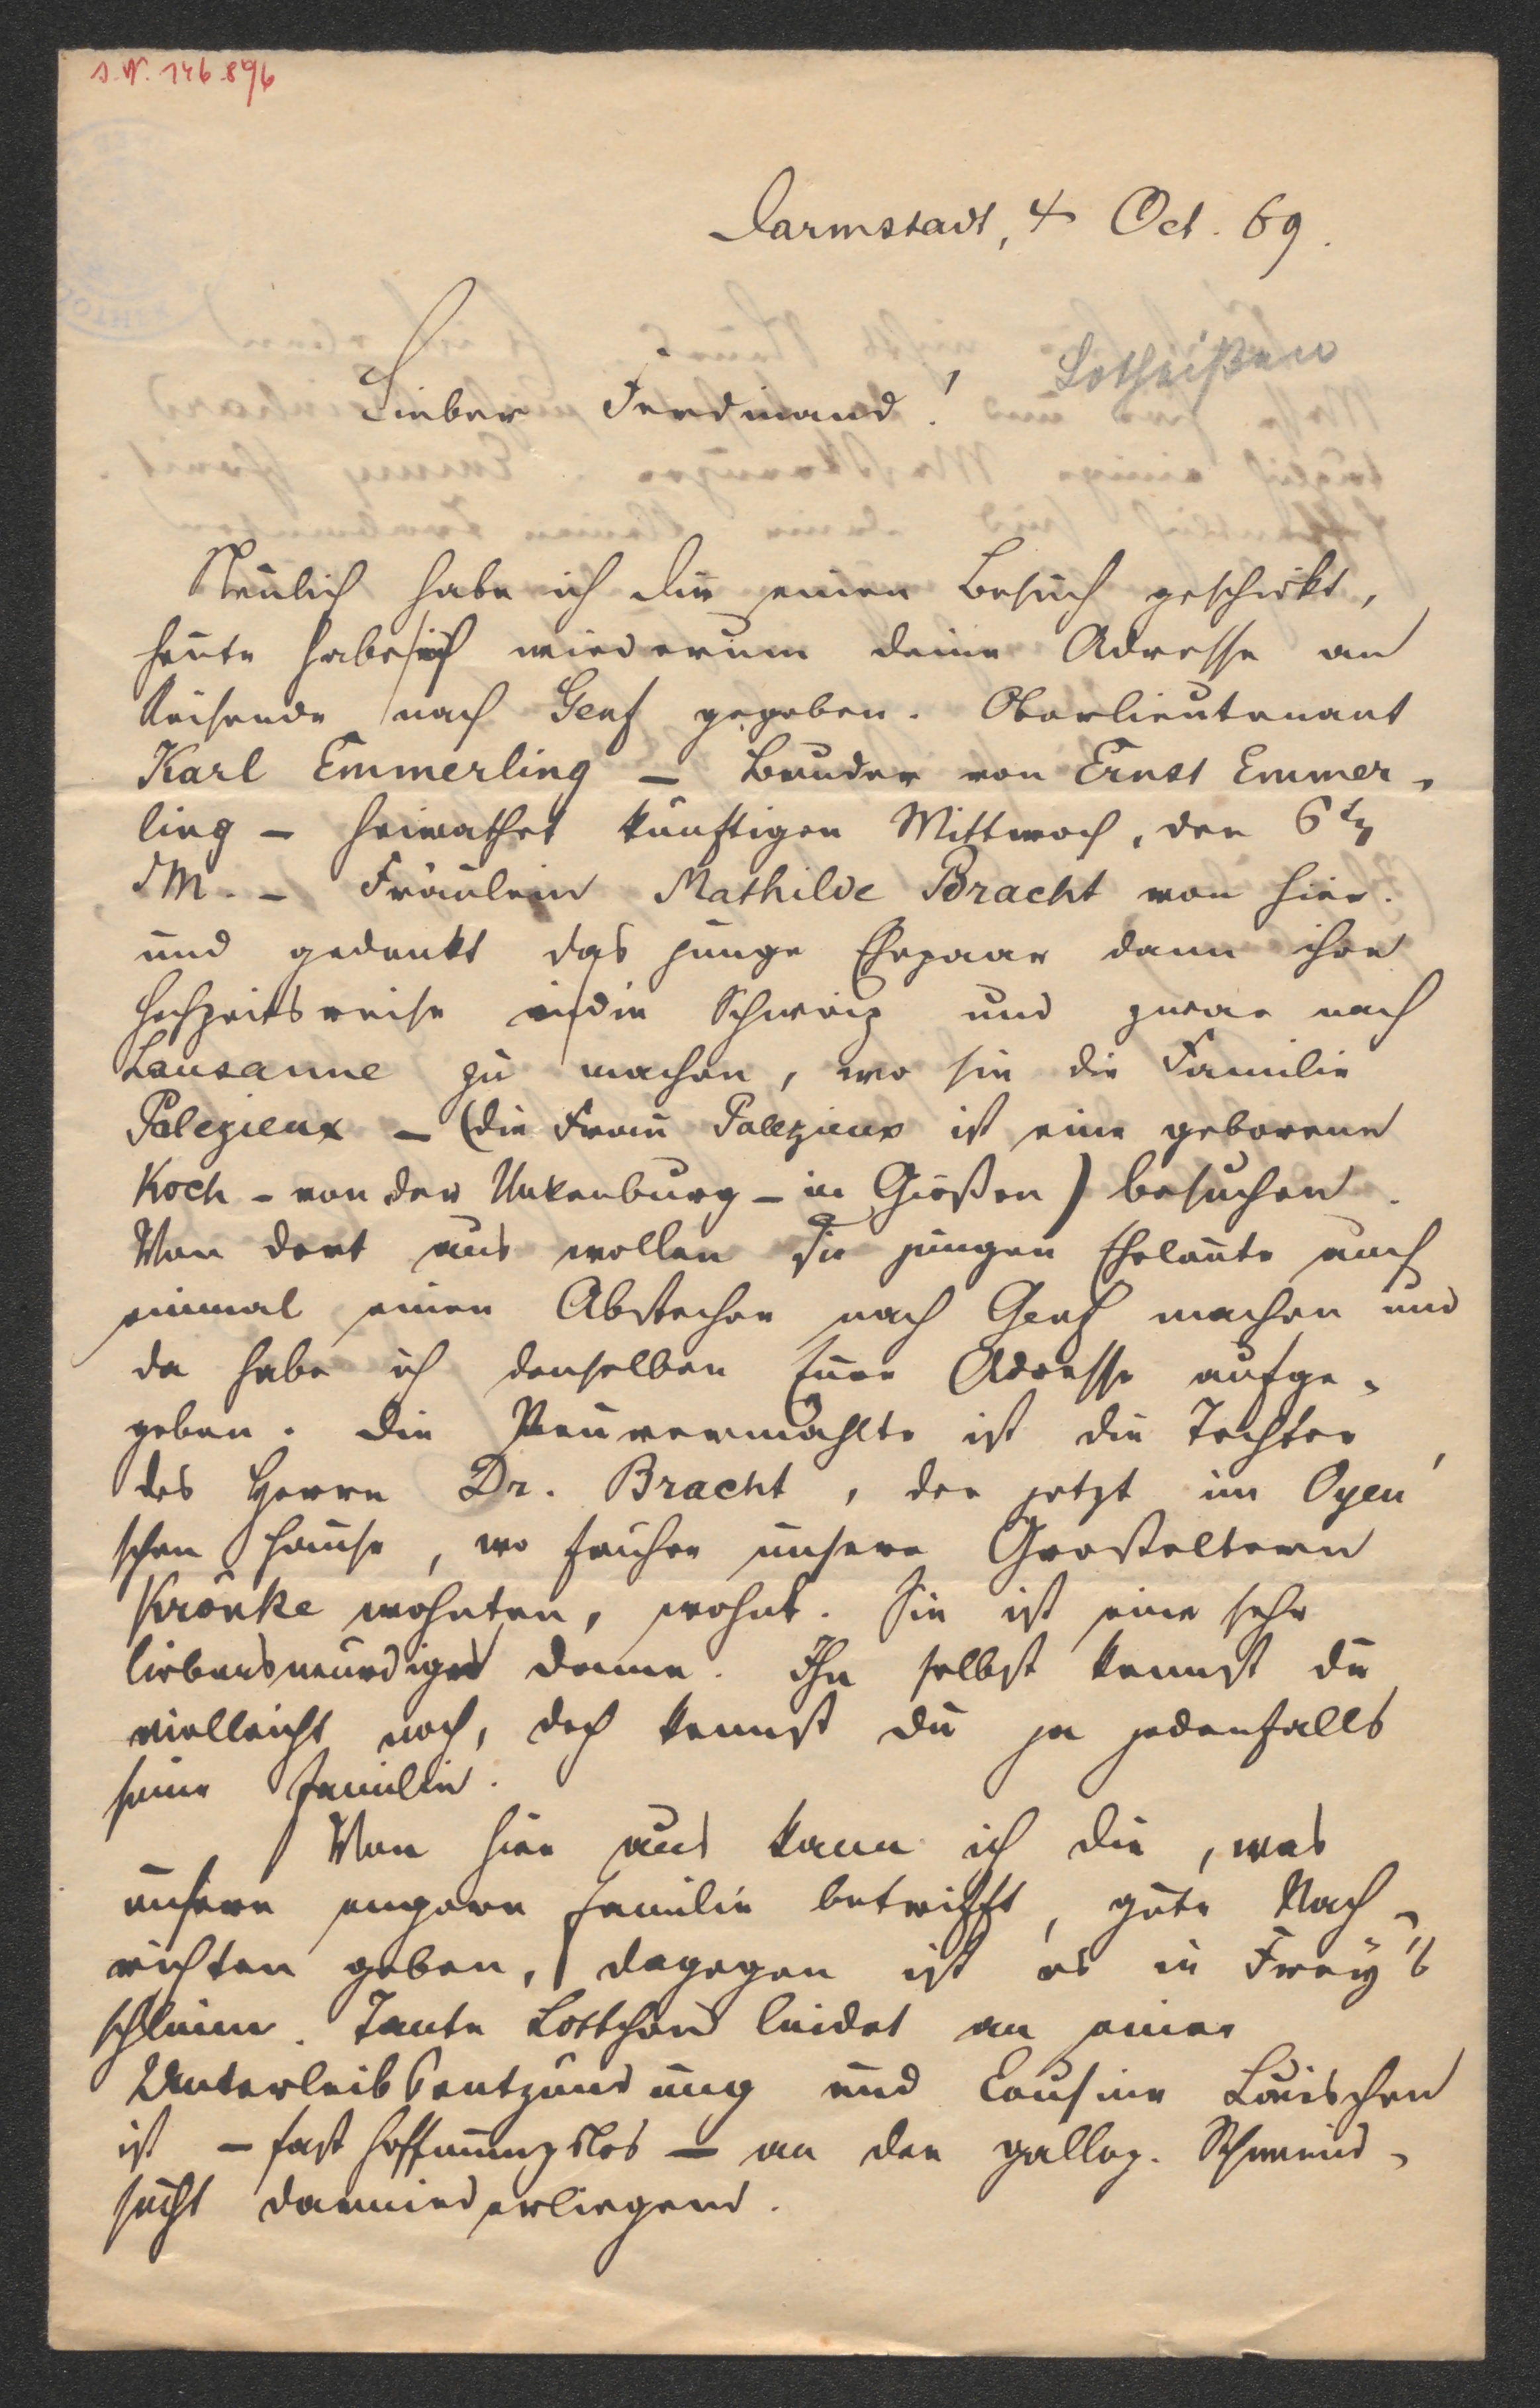 J.N. 146.896
Darmstadt, 4 Oct. 69.
Lotheißen
Lieber Ferdinand!
Neulich habe ich dir einen Besuch geschickt,
heute habe ich wiederum deine Adresse an
Reisende nach Genf gegeben. Oberlieutenant
Karl Emmerling – Bruder von Ernst Emmer-
ling – heirathet künftigen Mittwoch, den 6ten
d M. – Fräulein Mathilde Bracht von hier.
und gedenkt das junge Ehepaar dann ihre
Hochzeitsreise in die Schweiz und zwar nach
Lausanne zu machen, wo sie die Familie
Palezieux – (die Frau Palezieux ist eine geborene
Koch – von der Unkenburg – in Gießen) besuchen.
Von dort aus wollen die jungen Eheleute auch
einmal einen Abstecher nach Genf machen und
da habe ich denselben Eure Adresse aufge-
geben. Die Neuvermählte ist die Tochter
des Herrn Dr. Bracht, der jetzt im Oyen'
schen Hause, wo früher unsere Großeltern
Krönke wohnten, wohnt. Sie ist eine sehr
liebenswürdige Dame. Ihn selbst kennst du
vielleicht noch, doch kennst du ja jedenfalls
seine Familie.
Von hier aus kann ich dir, was
unsere engere Familie betrifft, gute Nach-
richten geben, dagegen ist es in Frey's
schlimm. Tante Lottchen leidet an einer
Unterleibsentzündung und Cousine Louischen
ist – fast hoffnungslos – an der gallop. Schwind-
sucht darniederliegend.